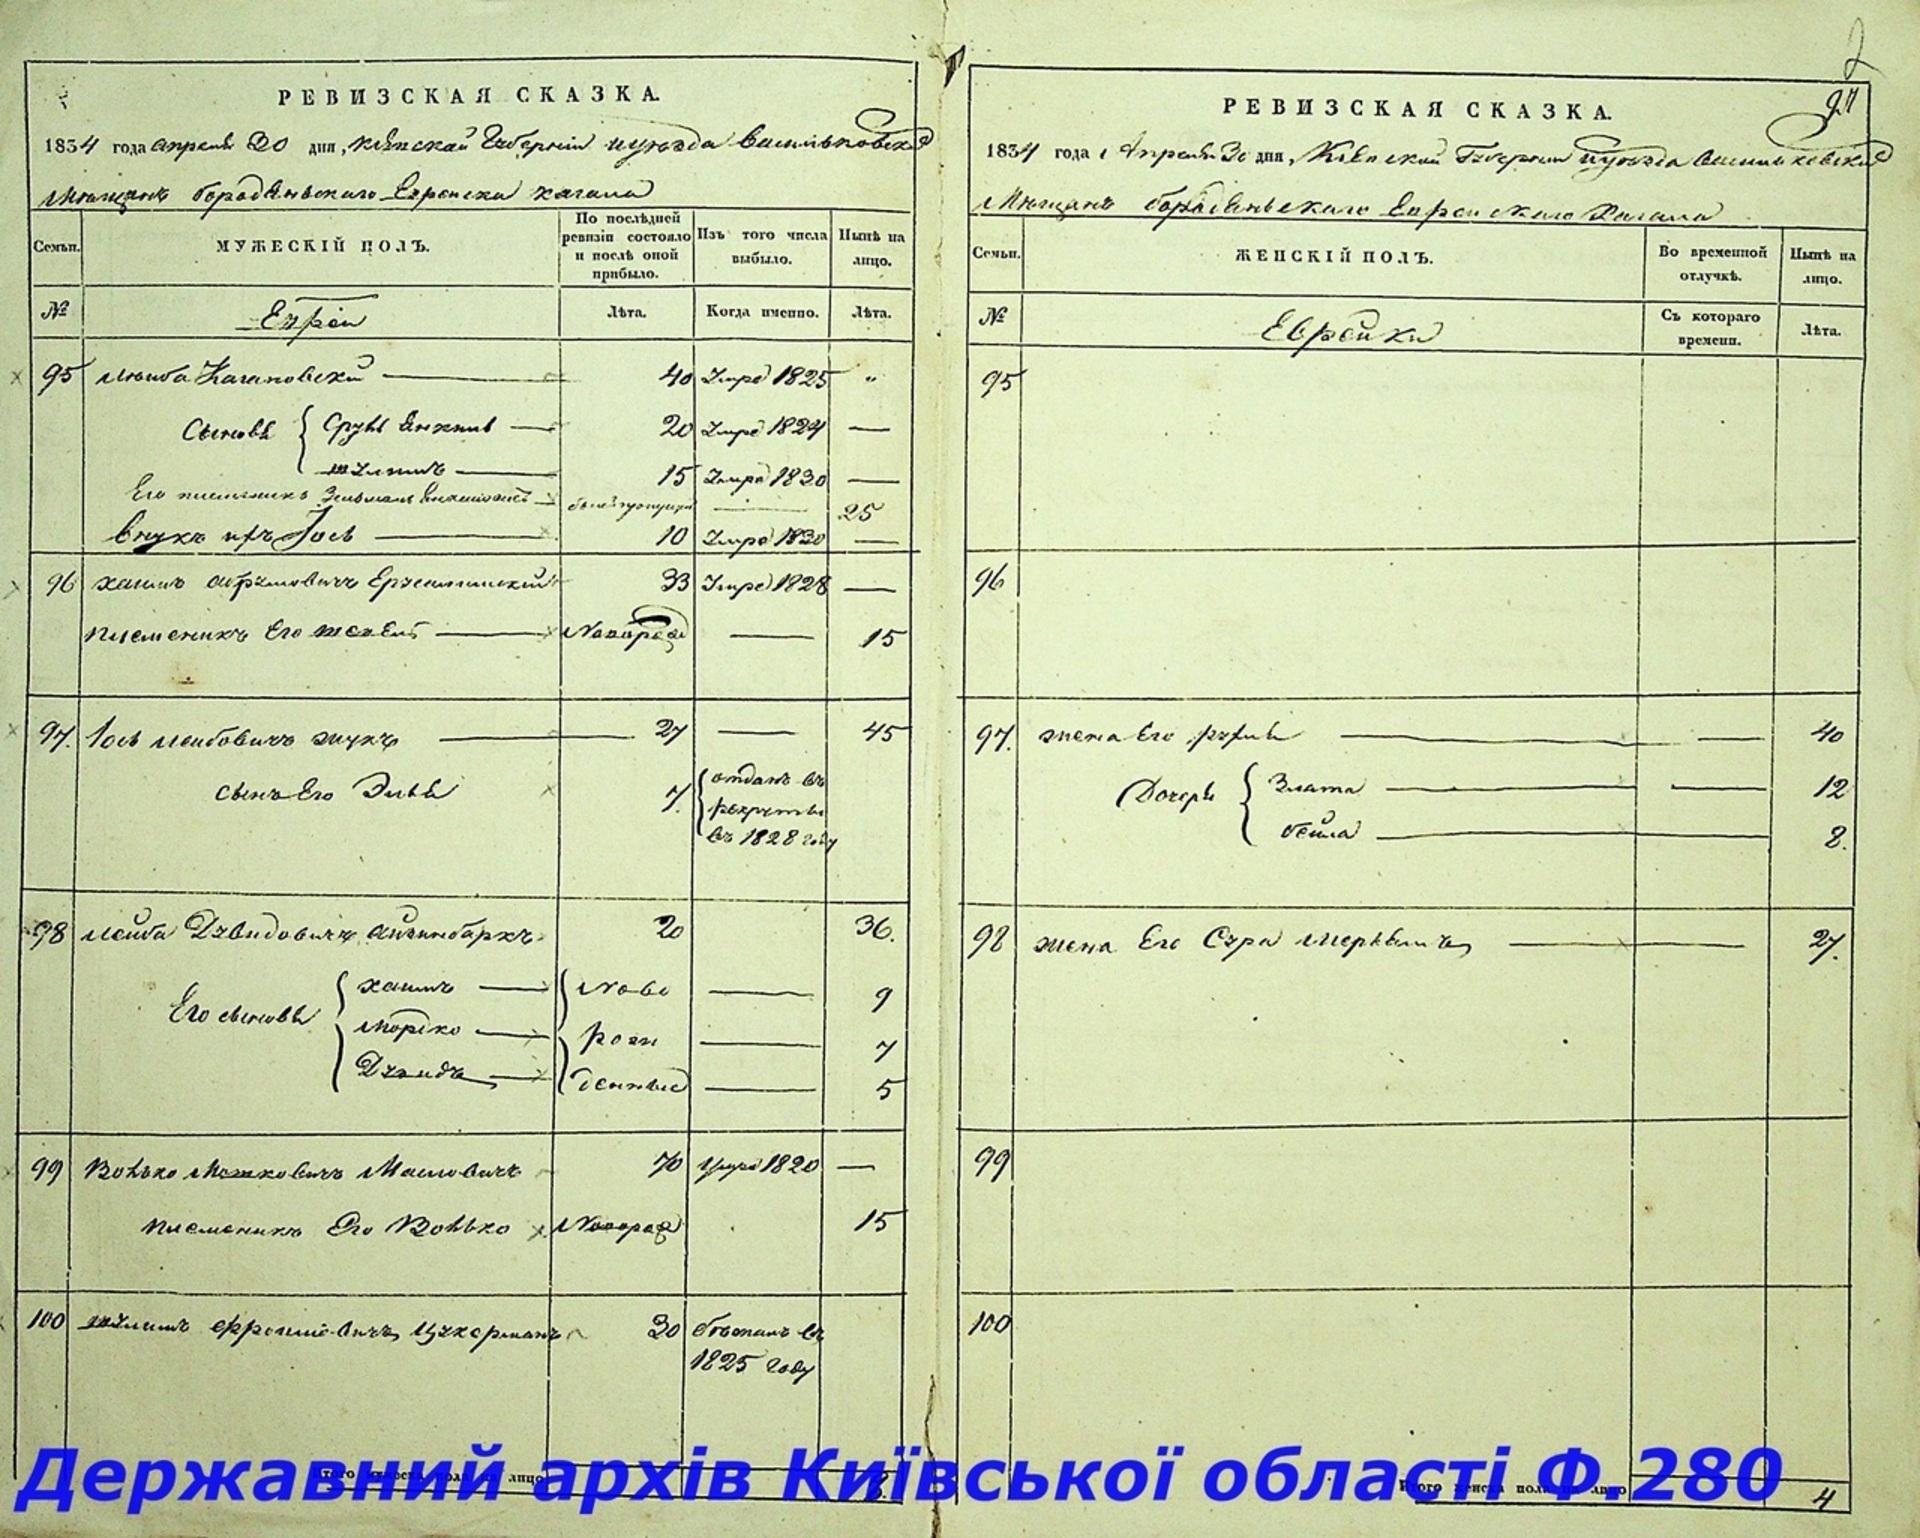 РЕВИЗСКАЯ СКАЗКА.
1834 года апреля 30 дня, Кіевской Губерніи и уезда Васильковского
Мещанъ Еврейска кагала
Семьи. МУЖЕСКІЙ ПОЛЪ. По послѣдней ревизіи состояло и послѣ оной прибыло. Изъ того числа выбыло. Нынѣ на лицо.
№ Евреи Лѣта. Когда именно. Лѣта.
95 Лейба Кагановский 40 Умре 1825 "
Сыновья Сруль Янкель 20 Умре 1824 —
Шулимъ 15 Умре 1830 —
Его племеникъ Зельманъ 25
Внукъ Іось 10 Умре 1830 —
96 Хаимъ Ерусалимский 33 Умре 1828 —
племеникъ Его Новорож — 15
97. Іось Лейбовичъ Жукъ 27 — 45
сынъ Его Элья 7. отданъ въ
рекруты
въ 1828 году
98 Лейба Дувидовичъ 20 36.
Его сыновья Хаимъ Ново — 9
Мошко рож — 7
Дувидъ денные — 5
99 Волько Мошковичъ Масловичъ 70 Умре 1820 —
племеникъ Его Волько Новорож 15
100 Шулимъ Цукерманъ 30 бежалъ въ
1825 году
Итого мужеска пола на лицо 8.
2
97
РЕВИЗСКАЯ СКАЗКА.
1834 года Апреля 30 дня, Кіевской Губернии и уезда Васильковского
Мещанъ Еврейского Кагала
Семьи. ЖЕНСКІЙ ПОЛЪ. Во временной отлучкѣ. Нынѣ на лицо.
№ Еврейки Съ котораго времени. Лѣта.
95
96
97. жена Его Рухля — 40
Дочери Злата — 12
Бейла 8.
98 жена Его Сура 27.
99
100
Итого женска пола на лицо 4
Державний архів Київської області Ф.280